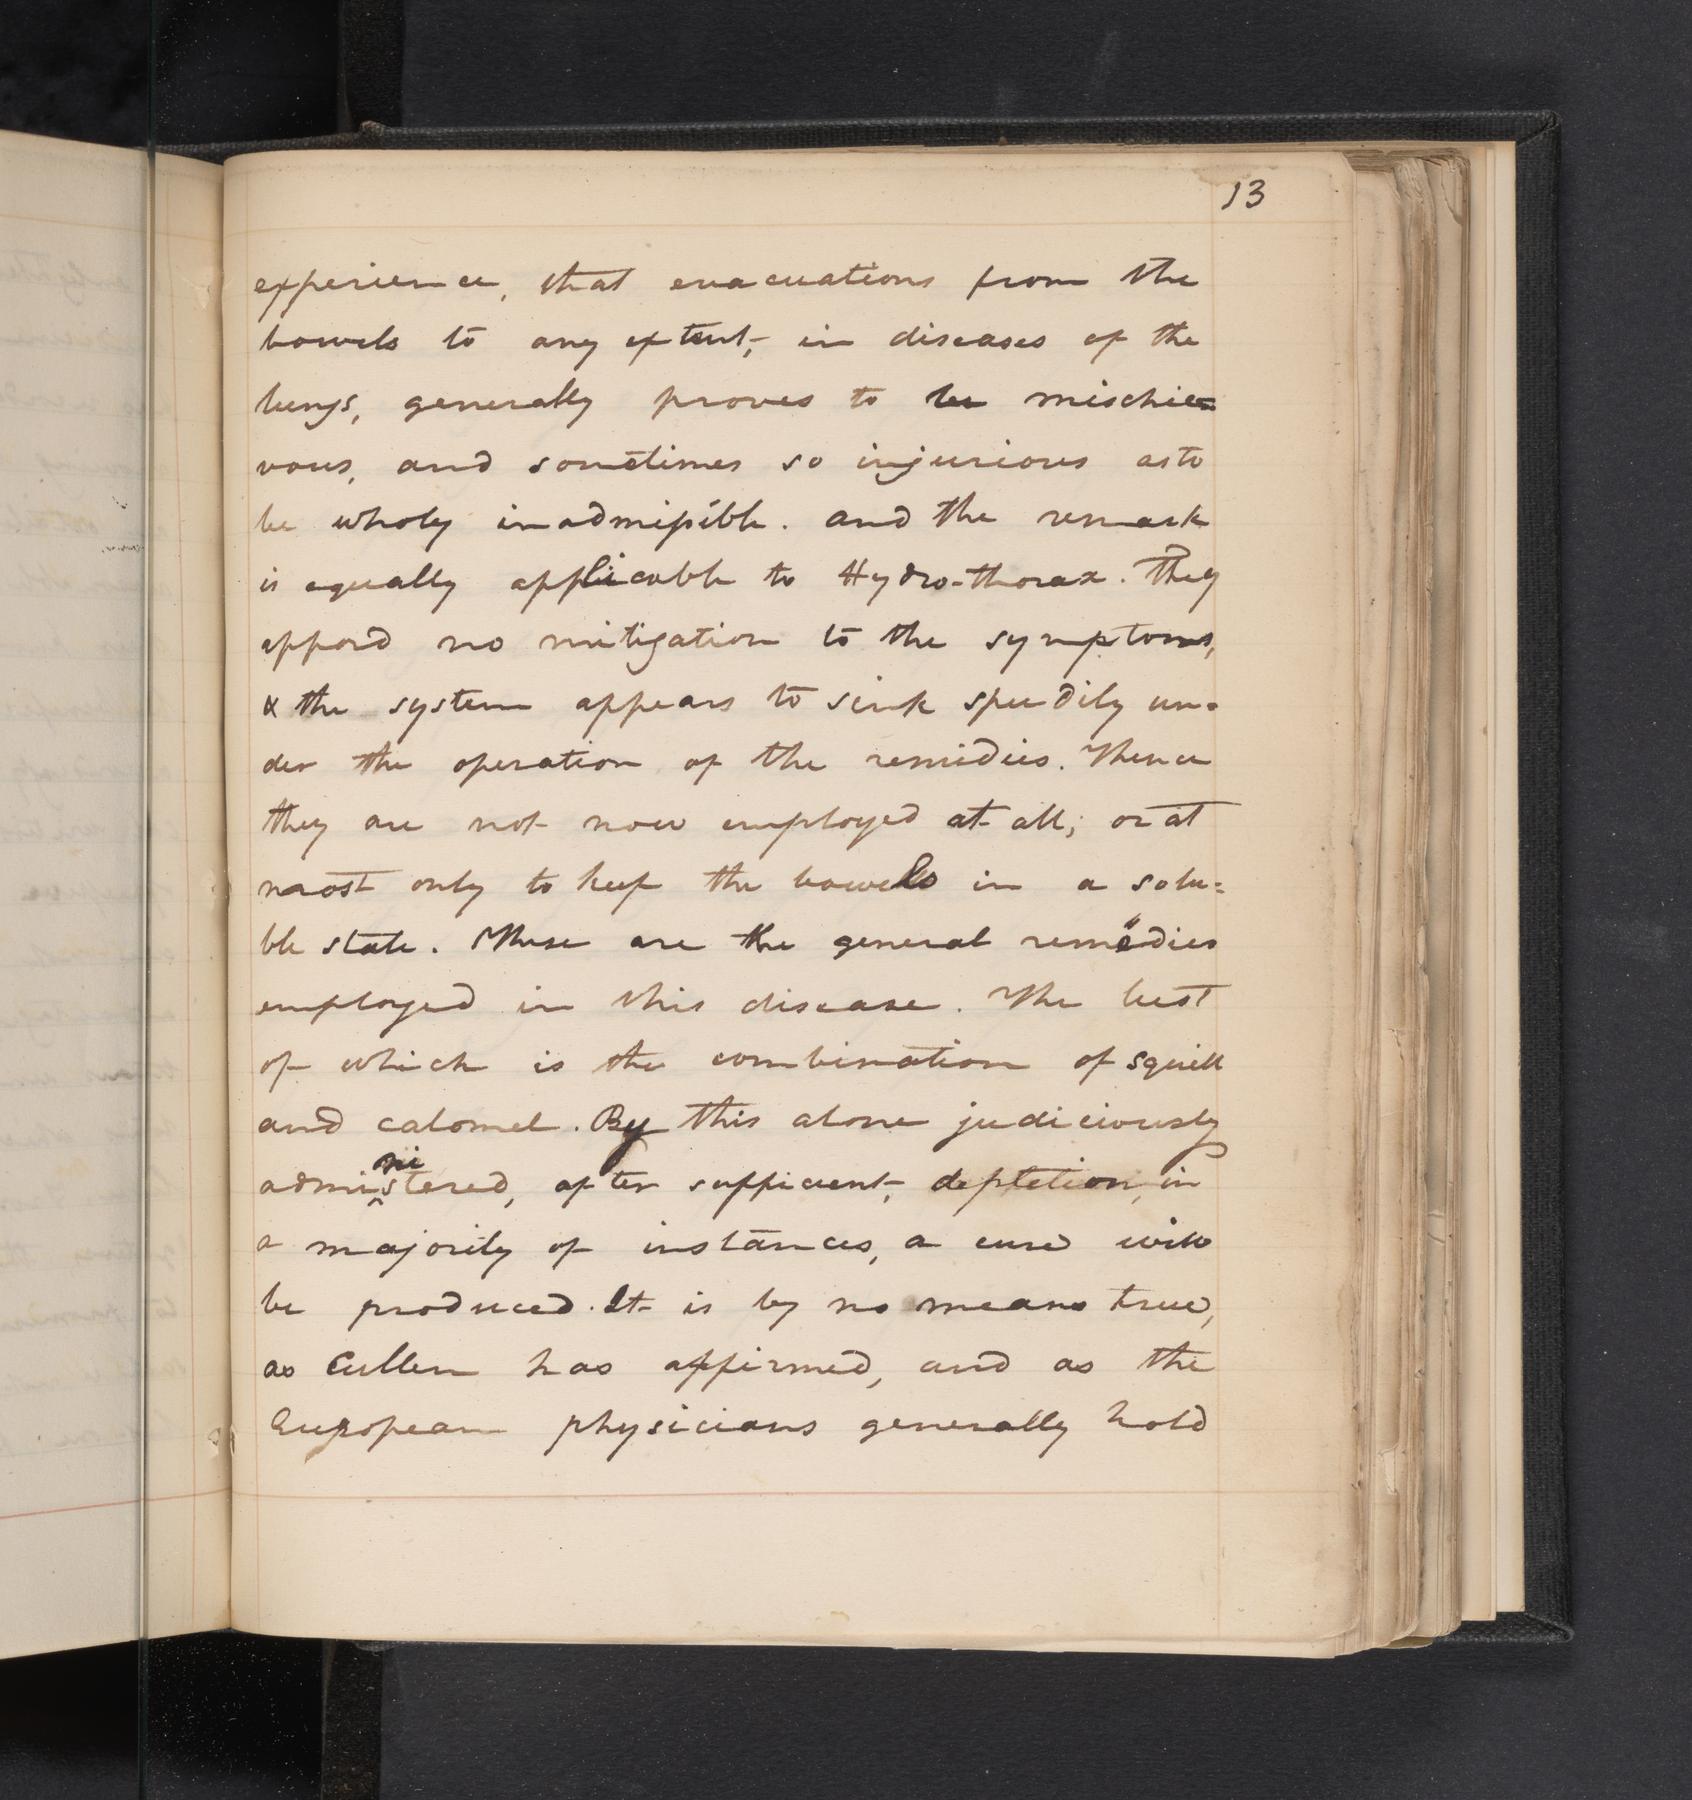 13
experience, that evacuations from the
bowels to any extent, in diseases of the
lungs, generally proves to be mischie=
vous, and sometimes so injurious as to
be wholy inadmissible. and the remark
is equally applicable to Hydro-thorax. They
afford no mitigation to the symptoms,
& the system appears to sink speedily un=
der the operation of the remidies. Thence
they are not now employed at all; or at
most only to keep the bowels in a solu=
ble state. These are the general remedies
employed in this disease. The best
of which is the combination of squill
and calomel. By this alone judiciously
administered, after sufficient, depletion, in
a majority of instances, a cure will
be produced. It is by no means true,
as Cullen has affirmed, and as the
European physicians generally hold